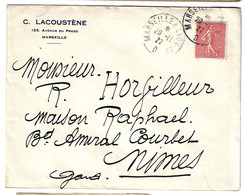 C. LACOUSTÈNE
123, AVENUE DU PRADO
MARSEILLE
MARSEILLE
MARSEILLE
Monsieur
R. Horvilleur
maison Raphael.
Bd Amiral Courbet
Nimes
Gard